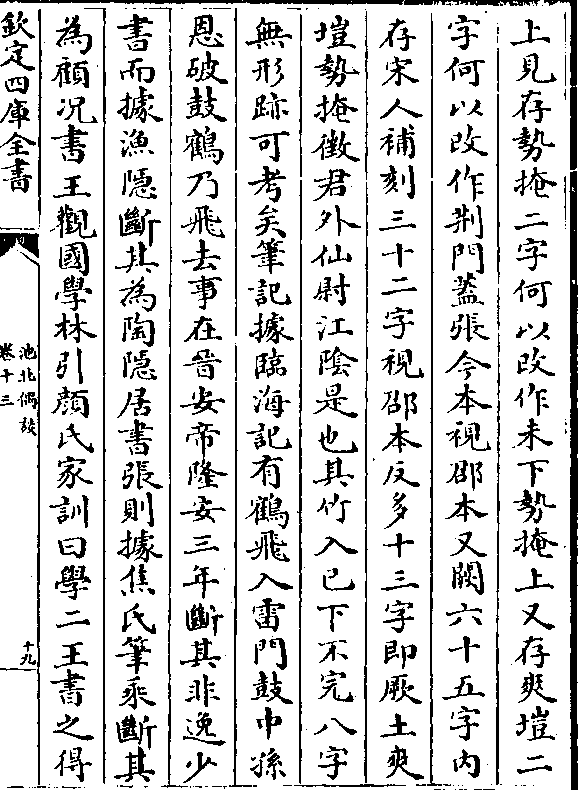 上見存勢掩二字何以改作未下勢掩上又存爽塏二
字何以改作荆門蓋張今本視邵本又闕六十五字内
存宋人補刻三十二字視邵本反多十三字即厥土爽
塏勢掩徵君外仙尉江陰是也其竹入已下不完八字
無形跡可考矣筆記據臨海記有鶴飛入雷門鼓中孫
恩破鼓鶴乃飛去事在晉安帝隆安三年斷其非逸少
書而據漁隱斷其為陶隱居書張則據焦氏筆乘斷其
為顧况書王觀國學林引顔氏家訓曰學二王書之得
欽定四庫全書
池北偶談
卷十三
十九